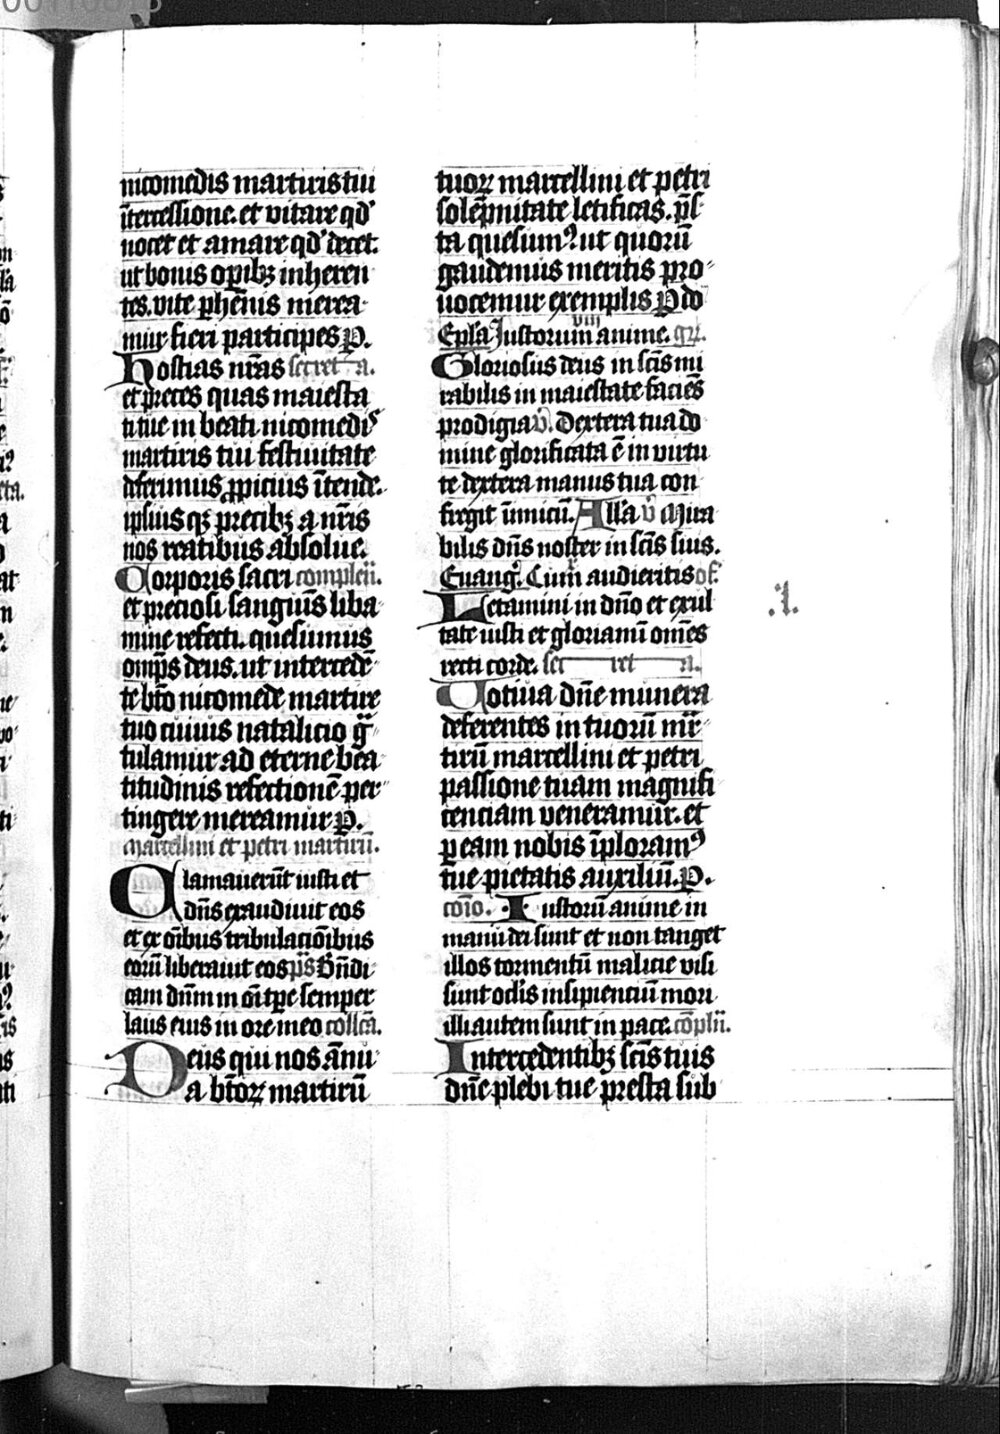 nicomedis martiris tui
ĩtercessione. et vitare qd'
nocet et amare qd' decet.
ut bonis oꝑibꝫ inheren
tes. vite ꝑhẽnis merea
mur fieri participes P.
Hostias nr̃as secret a.
et preces quas maiesta
ti tue in beati nicomedis
martiris tui festiuitate
deferimus ꝓpicius ĩtende.
ipsiusqꝫ precibꝫ a nr̃is
nos reatibus absolue.
Corporis sacri complen̄.
et preciosi sanguĩs liba
mine refecti. quesumus
omp̃s deus. ut intercedẽ
te bt̃o nicomede martire
tuo cuius natalicio g̃
tulamur ad eterne bea
titudinis refectionẽ per
tingere mereamur P.
marcellini et petri martirũ.
Clamauerũt iusti et
dñs exaudiuit eos
et ex oĩbus tribulaciõibus
eorũ liberauit eos p̃s Bñdi
cam dñm in oĩ tp̃e semper
laus eius in ore meo collc̃a.
Deus qui nos ãnu
a bt̃oꝝ martirũ
tuoꝝ marcellini et petri
solẽpnitate letificas. p̃s
ta quesumꝰ ut quorũ
gaudemus meritis pro
uocemur exemplis P do
viii
Ep̃la Justorum anime. gr̃.
Gloriosus deus in sc̃is mi
rabilis in maiestate faciẽs
prodigia v̉. Dextera tua do
mine glorificata ẽ in virtu
te dextera manus tua con
fregit ĩnimicũ. All'a v̉ Mira
bilis dñs noster in sc̃is suis.
Euangͥ. Cum audieritis of.
Letamini in dño et exul
tate iusti et gloriamĩ om̃es
recti corde. sec ret a.
Uotiua dñe munera
deferentes in tuorũ mr̃
tirũ marcellini et petri
passione tuam magnifi
cenciam veneramur. et
ꝑ eam nobis ĩploramꝰ
tue pietatis auxiliũ. P.
cõio. Iustorũ anime in
manu dei sunt et non tanget
illos tormentũ malicie visi
sunt oc̃lis insipienciũ mori
illi autem sunt in pace. cõplñ.
Intercedentibꝫ sc̃is tuis
dñe plebi tue presta sub
.1.